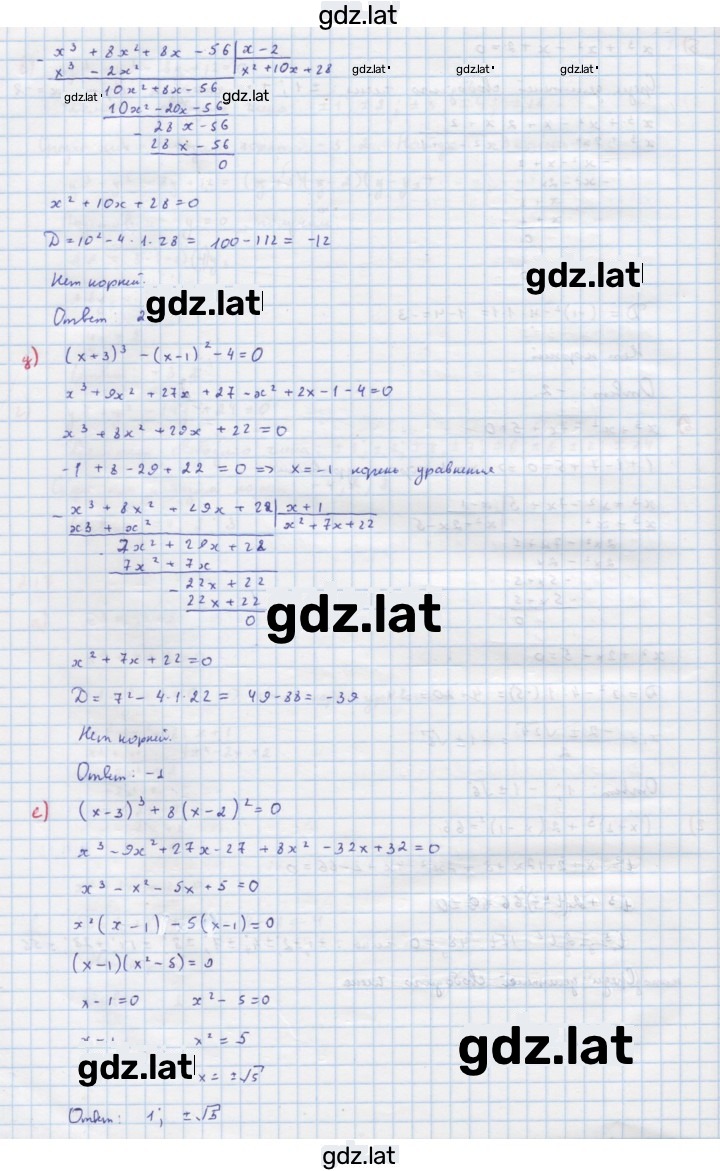 gdz.lat
- x³ + 8x² + 8x - 56 | x - 2
x³ - 2x² | x² + 10x + 28
gdz.lat gdz.lat gdz.lat
10x² + 8x - 56
gdz.lat gdz.lat
10x² - 20x - 56
- 28x - 56
28x - 56
0
x² + 10x + 28 = 0
D = 10² - 4 · 1 · 28 = 100 - 112 = -12
gdz.lat
Нет корней.
Ответ: 2
gdz.lat
д) (x+3)³ - (x-1)² - 4 = 0
x³ + 9x² + 27x + 27 - x² + 2x - 1 - 4 = 0
x³ + 8x² + 29x + 22 = 0
-1 + 8 - 29 + 22 = 0 => x = -1 корень уравнения
- x³ + 8x² + 29x + 22 | x + 1
x3 + x² | x² + 7x + 22
- 7x² + 29x + 22
7x² + 7x
- 22x + 22
22x + 22
0
gdz.lat
x² + 7x + 22 = 0
D = 7² - 4·1·22 = 49 - 88 = -39
Нет корней.
Ответ: -1
е) (x-3)³ + 8(x-2)² = 0
x³ - 9x² + 27x - 27 + 8x² - 32x + 32 = 0
x³ - x² - 5x + 5 = 0
x²(x - 1) - 5(x-1) = 0
(x-1)(x² - 5) = 0
x - 1 = 0 x² - 5 = 0
x² = 5
gdz.lat
gdz.lat
x = ±√5
Ответ: 1; ±√5
gdz.lat